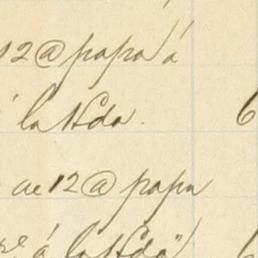 12 @ papa á
la Hda. 6
ae 12 @ papa
á la Hda"